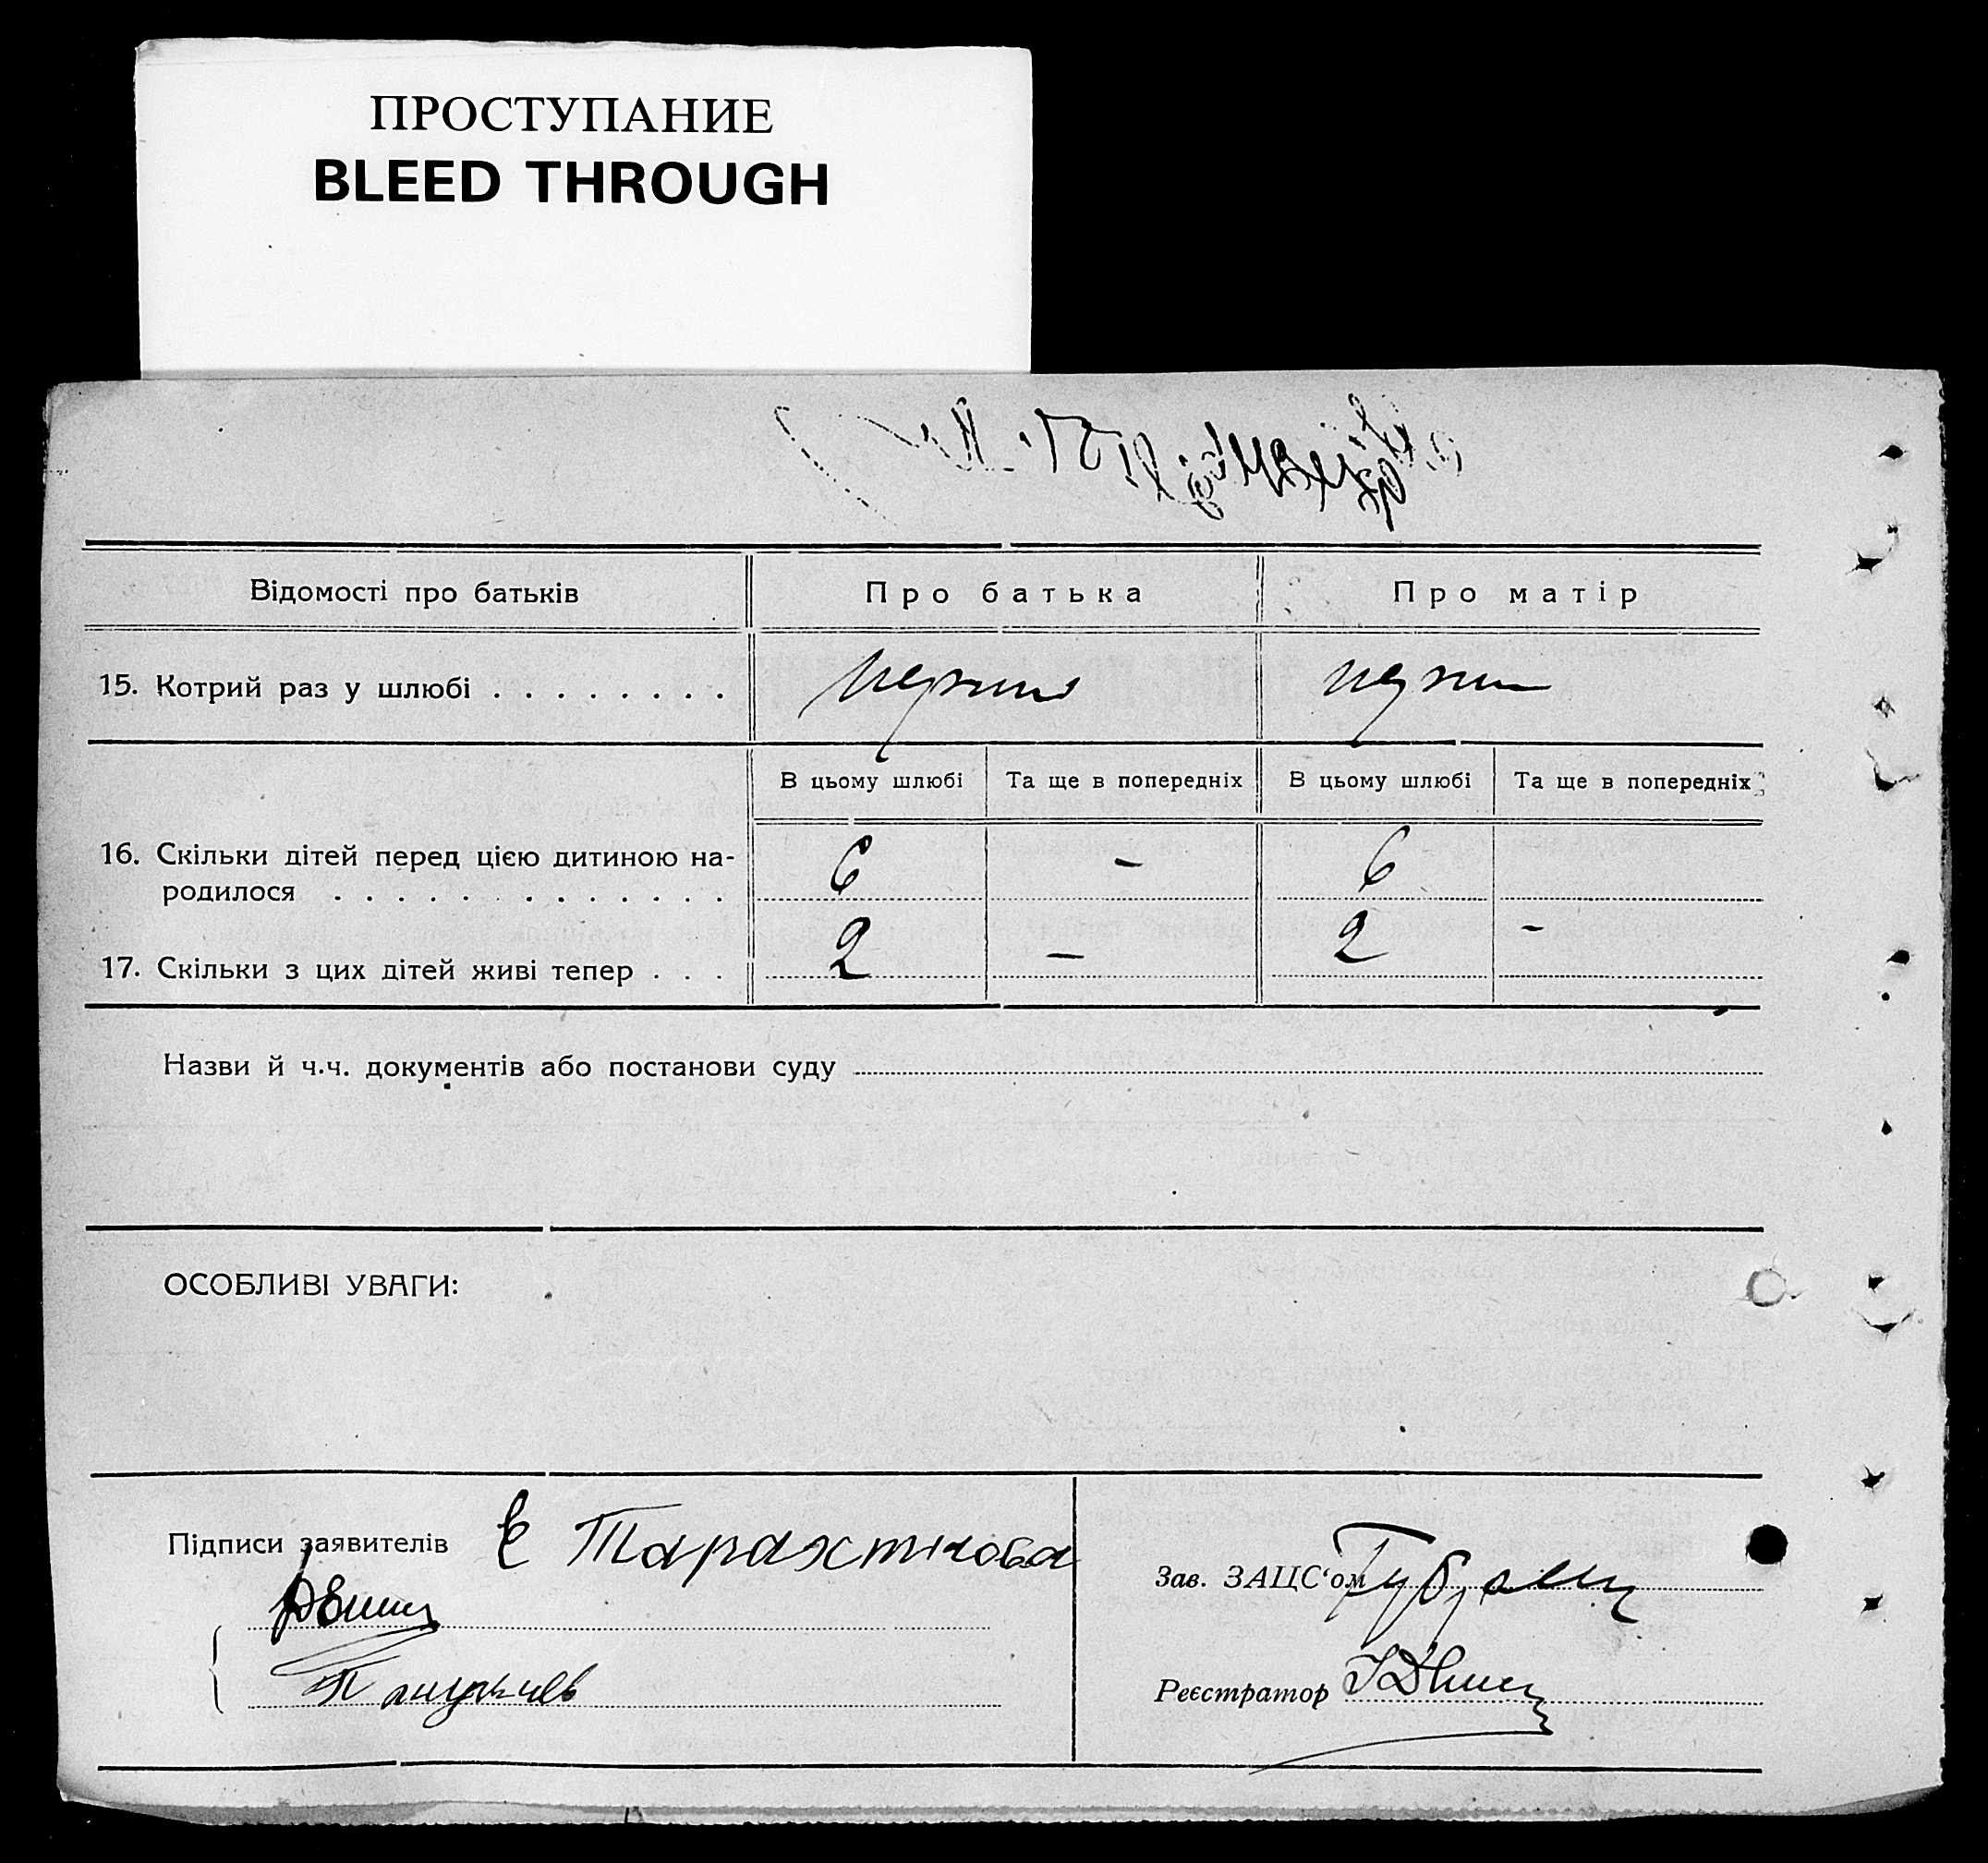 ПРОСТУПАНИЕ
BLEED THROUGH
Відомості про батьків Про батька Про матір
15. Котрий раз у шлюбі . . . . . . . .
В цьому шлюбі Та ще в попередніх В цьому шлюбі Та ще в попередніх
16. Скільки дітей перед цією дитиною на-
родилося . . . . . . . . . . . . . 6 – 6
17. Скільки з цих дітей живі тепер . . . 2 – 2 –
Назви й ч.ч. документів або постанови суду
ОСОБЛИВІ УВАГИ:
Підписи заявителів Є Тарахтікова
Зав. ЗАЦС‘ом
Реєстратор